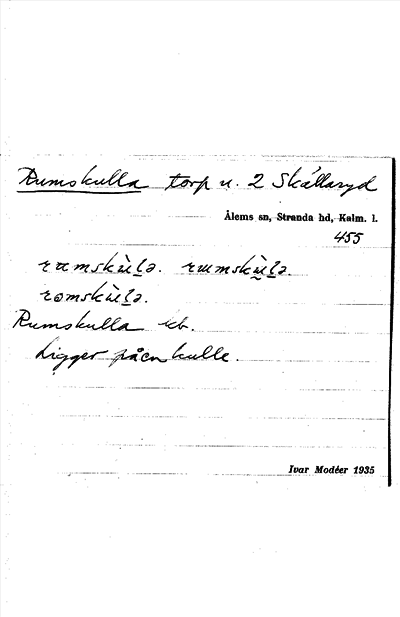 Rumskulla torp u. 2 Skällaryd
Ålems sn, Stranda hd, Kalm. l.
455
Rumskulla kb.
Ligger på en kulle.
Ivar Modéer 1935